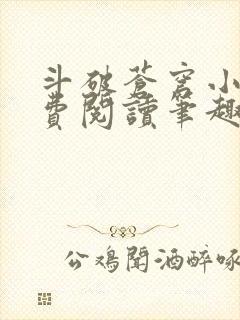 斗破苍穹小
费阅读笔趣
公鸡闻酒醉啄